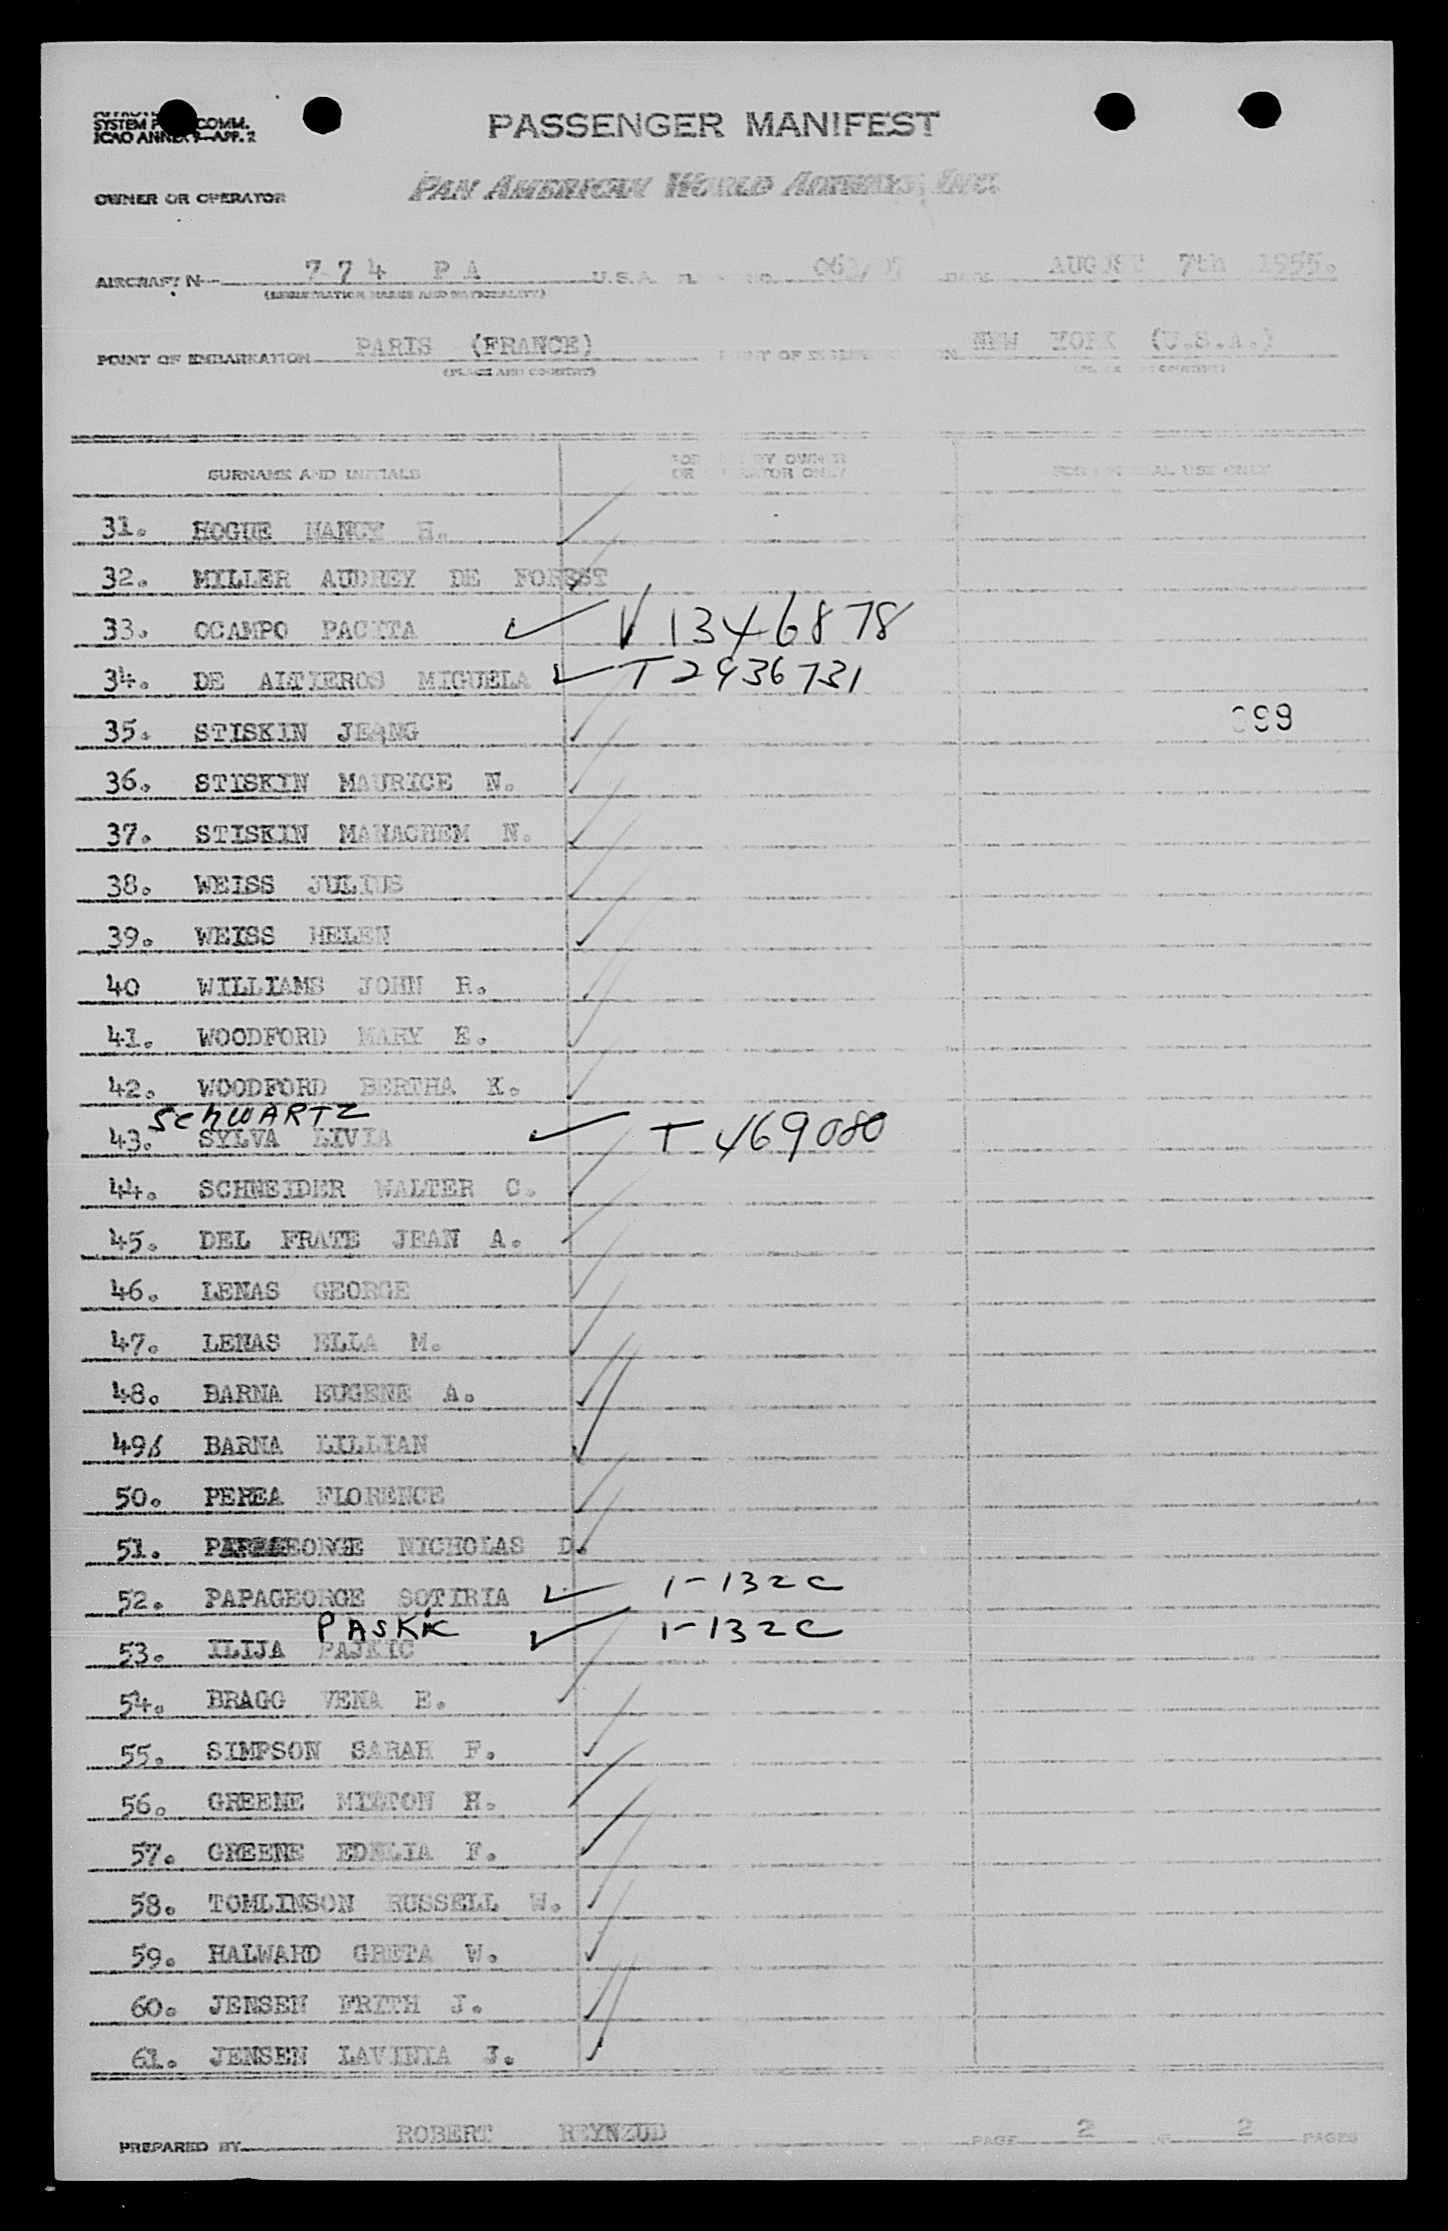 SYSTEM COMM.
ICAO ANNEX 9—APP. 2
PASSENGER MANIFEST
OWNER OR OPERATOR PAN AMERICAN WORLD AIRWAYS, INC.
AIRCRAFT N 774 PA U.S.A. NO. DATE AUGUST 7th 1955.
(REGISTRATION MARKS AND NATIONALITY)
POINT OF EMBARKATION PARIS (FRANCE) POINT OF NEW YORK (U.S.A.)
(PLACE AND COUNTRY) (PLACE AND COUNTRY)
SURNAME AND INITIALS FOR USE BY OWNER OR OPERATOR ONLY FOR OFFICIAL USE ONLY
31. HOGUE NANCY H.
32. MILLER AUDREY DE FOREST
33. OCAMPO PACITA ✓ V 1346878
34. DE ALTIEROS MIGUELA ✓ T 2936731
35. STISKIN JEANG 099
36. STISKIN MAURICE N.
37. STISKIN MANACHEM N.
38. WEISS JULIUS
39. WEISS HELEN
40 WILLIAMS JOHN R.
41. WOODFORD MARY E.
42. WOODFORD BERTHA K.
SCHWARTZ
43. SYLVA LIVIA ✓ T 469080
44. SCHNEIDER WALTER C.
45. DEL FRATE JEAN A.
46. LENAS GEORGE
47. LENAS ELLA M.
48. BARNA EUGENE A.
49 BARNA LILLIAN
50. PEREA FLORENCE
51. PAPAGEORGE NICHOLAS D.
52. PAPAGEORGE SOTIRIA ✓ 1-132C
PASKIC
53. ILIJA PAJKIC ✓ 1-132C
54. BRAGG VENA E.
55. SIMPSON SARAH F.
56. GREENE MILTON H.
57. GREENE EDELIA F.
58. TOMLINSON RUSSELL W.
59. HALWARD GRETA W.
60. JENSEN FRITH J.
61. JENSEN LAVINIA J.
PREPARED BY ROBERT REYNZUD PAGE 2 OF 2 PAGES